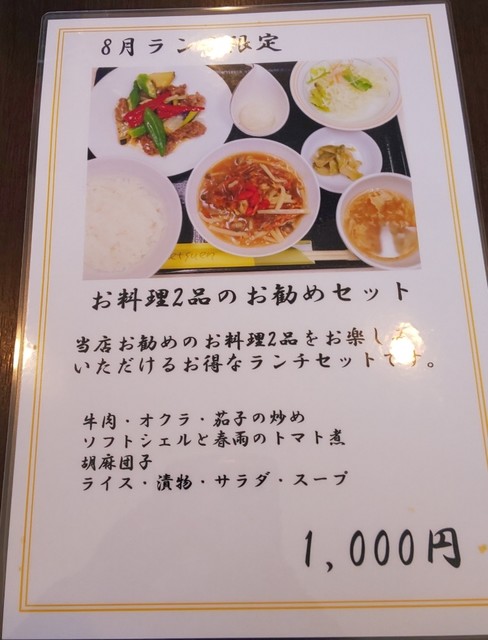 8月ラン 限定
お料理2品のお勧めセット
当店お勧めのお料理2品をお楽し
いただけるお得なランチセットです。
牛肉・オクラ・茄子の炒め
ソフトシェルと春雨のトマト煮
胡麻団子
ライス・漬物・サラダ・スープ
1,000円